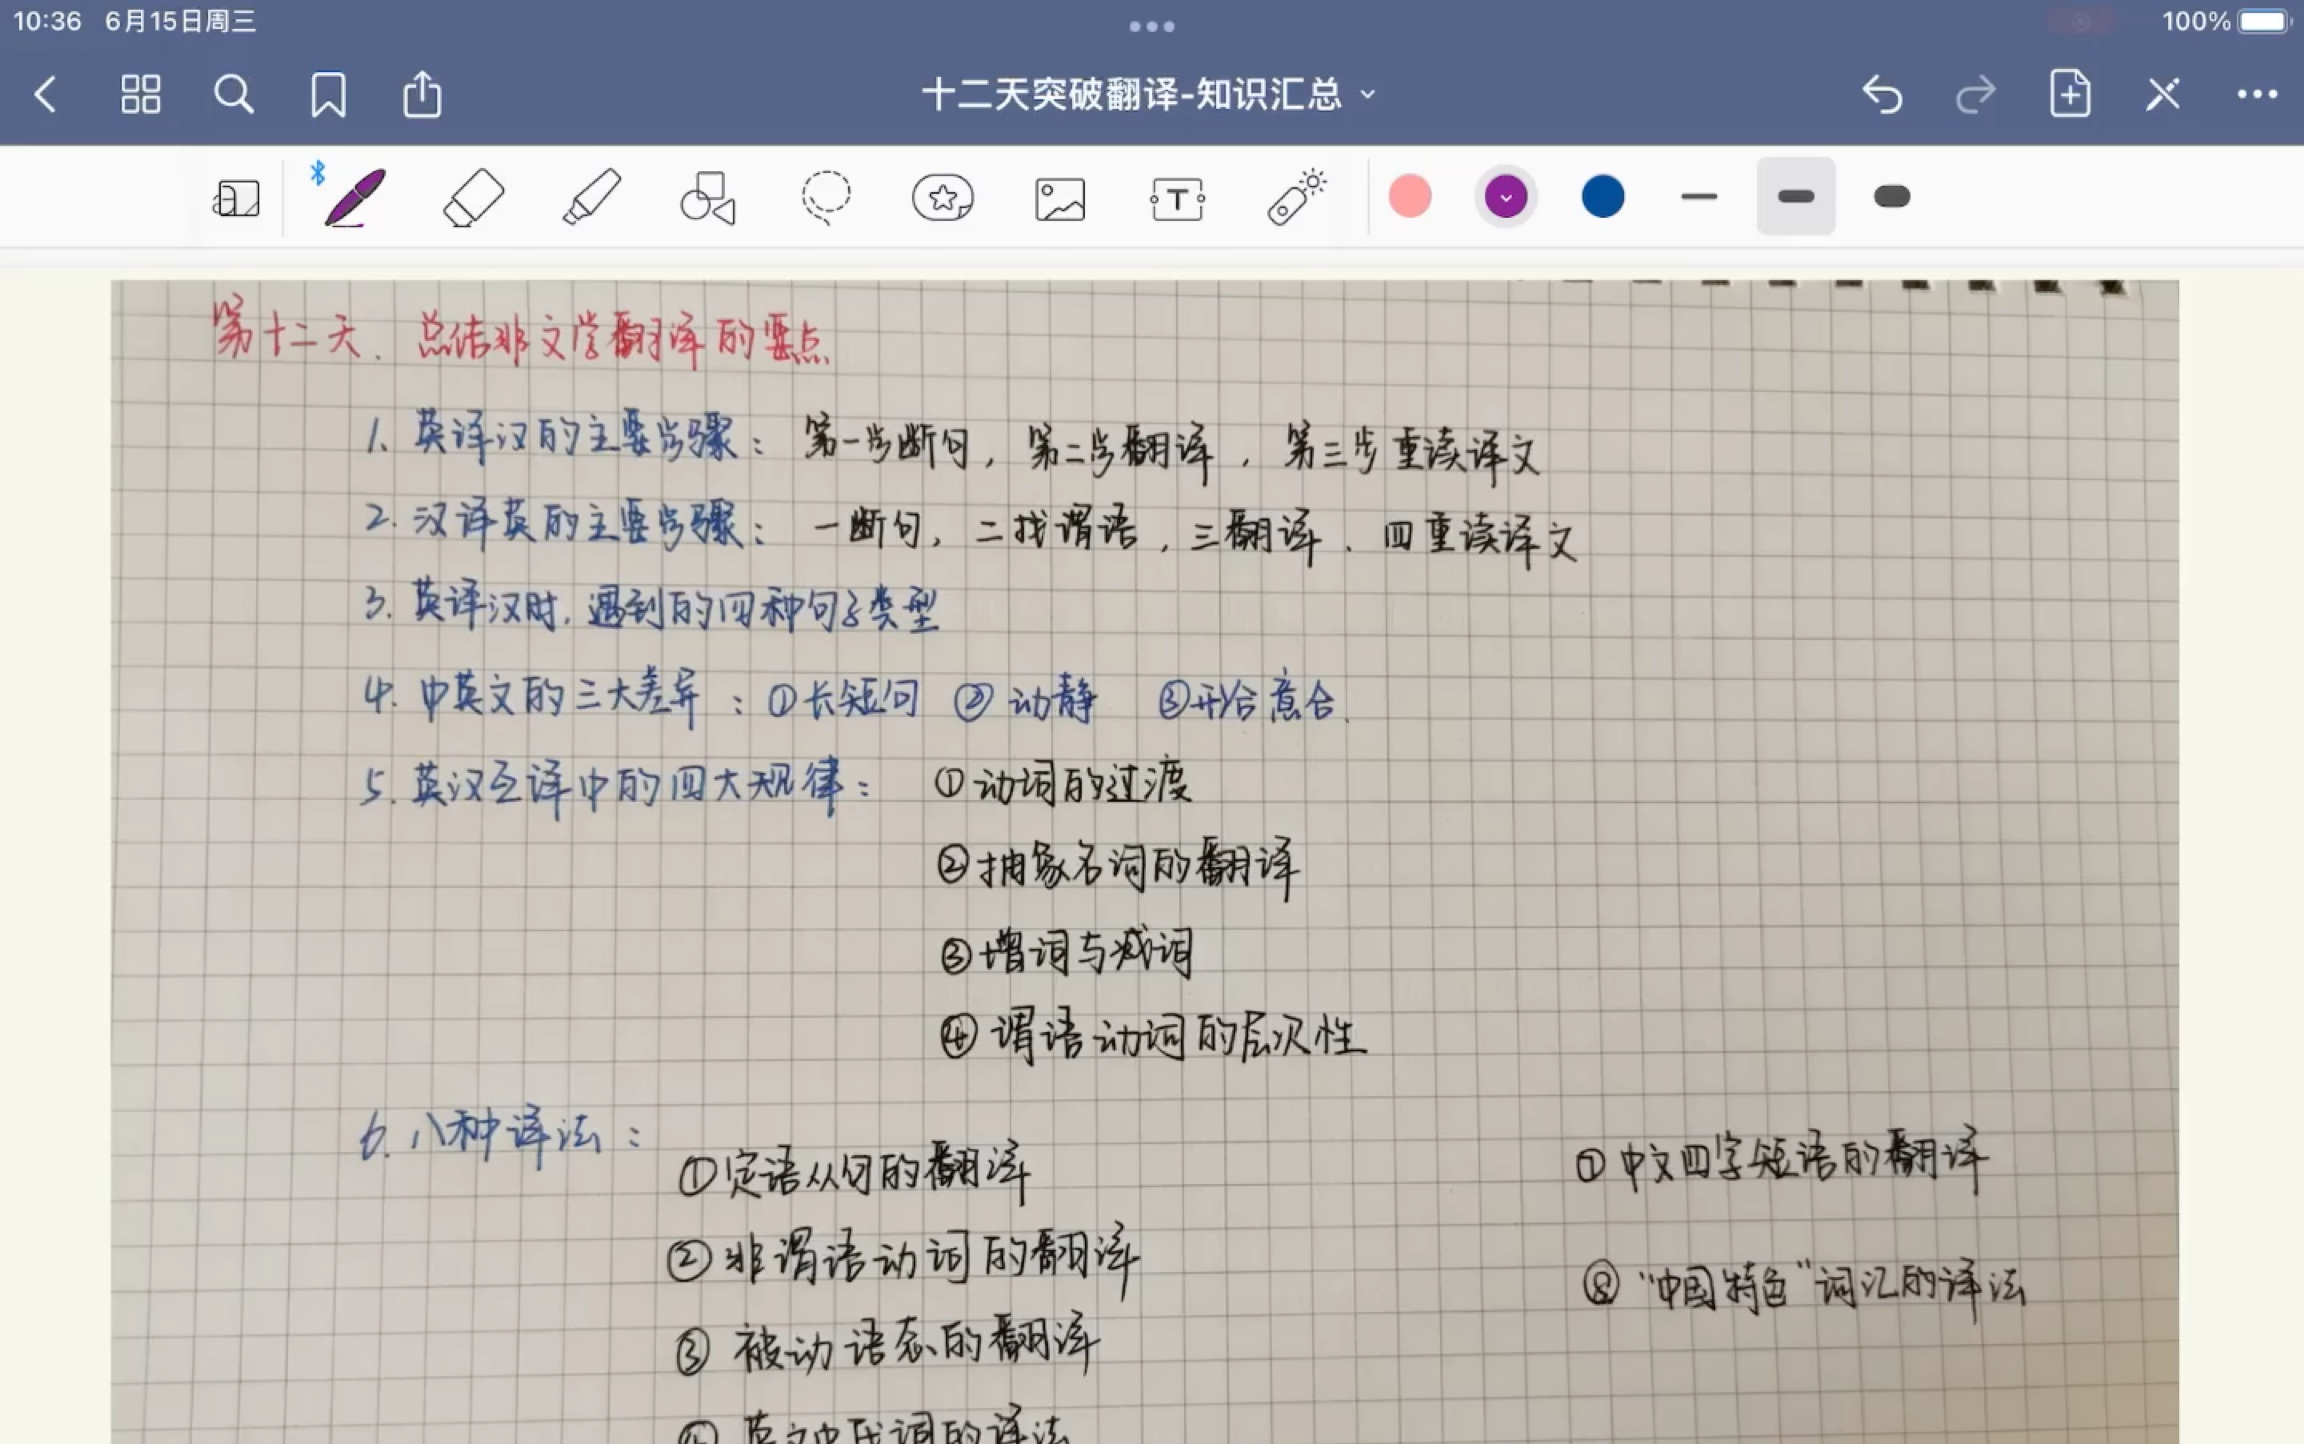 10:36 6月15日周三
100%
十二天突破翻译-知识汇总
第十二天、总结非文学翻译的要点
1. 英译汉的主要步骤：第一步断句，第二步翻译，第三步重读译文
2. 汉译英的主要步骤：一断句，二找谓语，三翻译、四重读译文
3. 英译汉时，遇到的四种句子类型
4. 中英文的三大差异：①长短句 ②动静 ③形合意合.
5. 英汉互译中的四大规律：①动词的过渡
②抽象名词的翻译
③增词与减词
④谓语动词的层次性
6. 八种译法：
①定语从句的翻译
②非谓语动词的翻译
③被动语态的翻译
④英文中代词的译法
⑦中文四字短语的翻译
⑧“中国特色”词汇的译法